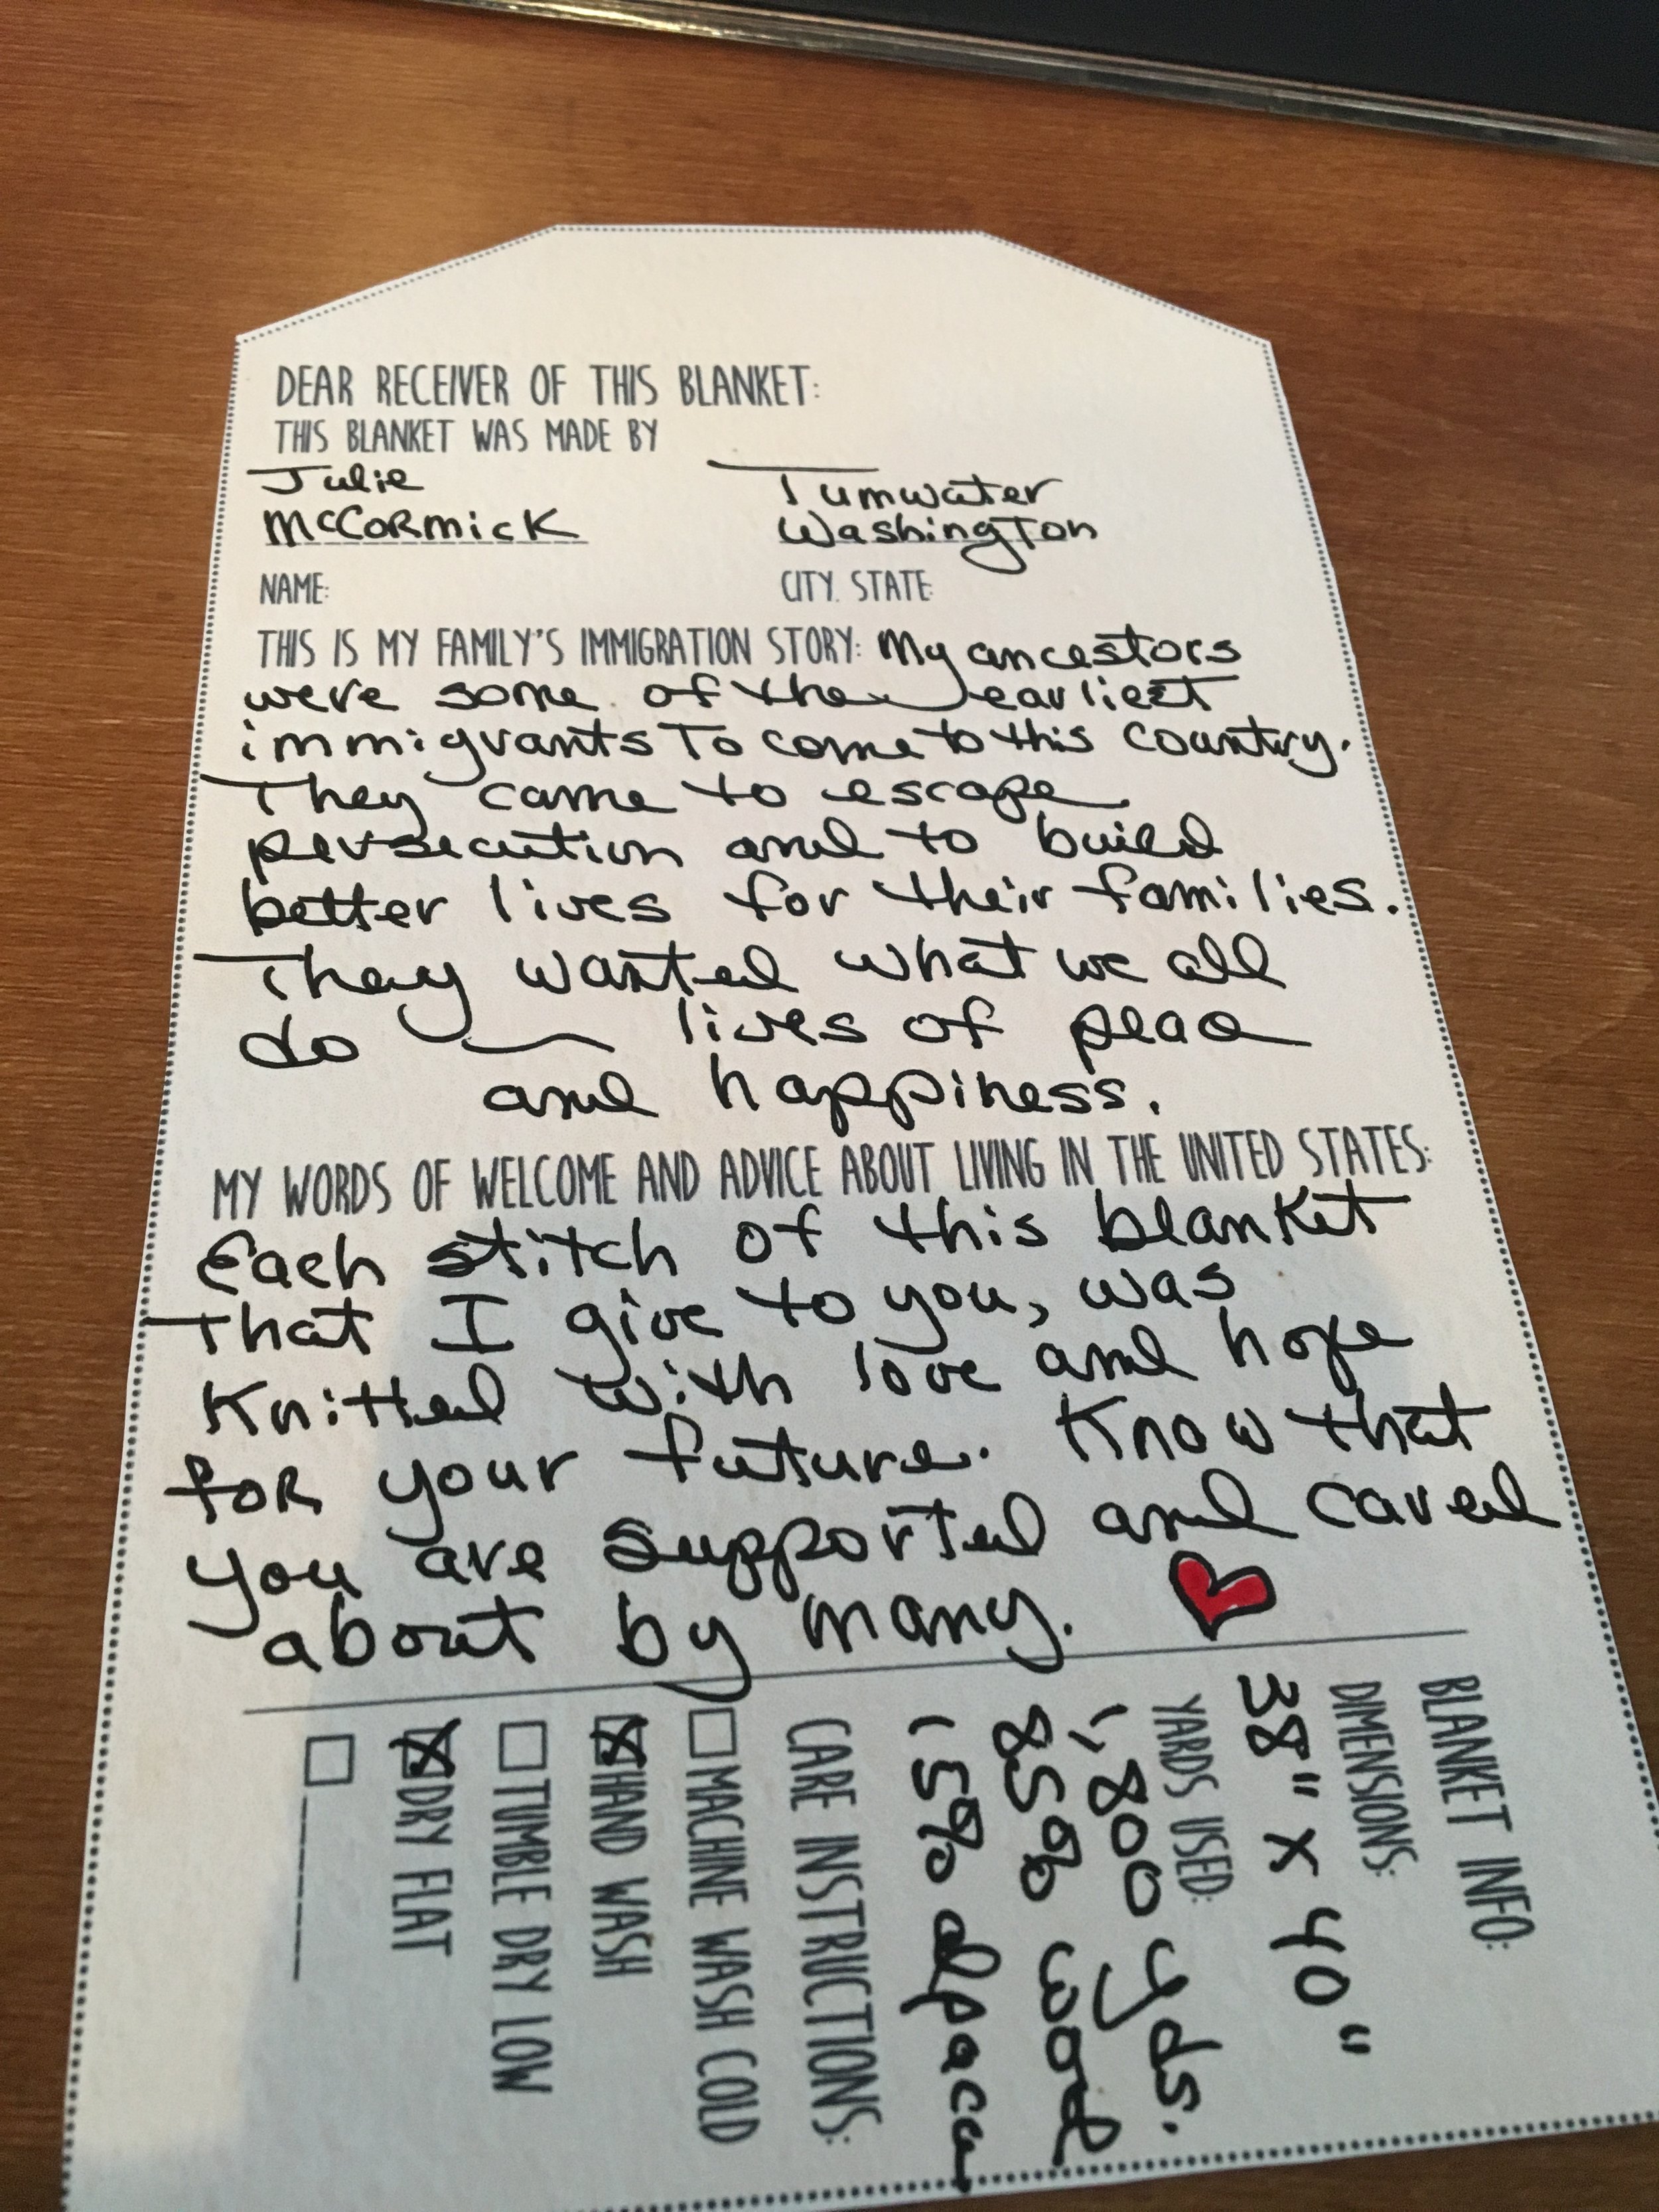 DEAR RECEIVER OF THIS BLANKET:
THIS BLANKET WAS MADE BY
Julie
McCormick
Tumwater
Washington
NAME:
CITY, STATE:
THIS IS MY FAMILY'S IMMIGRATION STORY: My ancestors
were some of the earliest
immigrants to come to this country.
They came to escape
persecution and to build
better lives for their families.
They wanted what we all
do — lives of peace
and happiness.
MY WORDS OF WELCOME AND ADVICE ABOUT LIVING IN THE UNITED STATES:
Each stitch of this blanket
that I give to you, was
knitted with love and hope
for your future. Know that
you are supported and cared
about by many. ❤
BLANKET INFO:
DIMENSIONS:
38" x 40"
YARDS USED:
1,800 yds.
85% wool
15% alpaca
CARE INSTRUCTIONS:
☐ MACHINE WASH COLD
☒ HAND WASH
☐ TUMBLE DRY LOW
☒ DRY FLAT
☐ ________